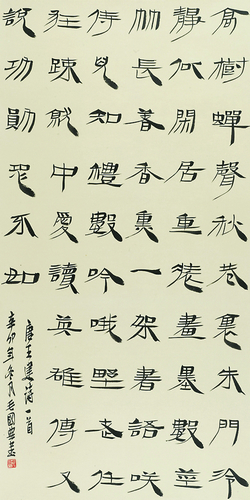 高樹蟬聲秋巷裏朱門冷
靜似閑居重裝畫墨數莖
竹長著香熏一架書語咲
侍兒知禮數吟哦野老任
狂疎就中愛讀英雄傳又
說功勛恐不如
唐王建詩一首
辛卯年冬月毛國典書